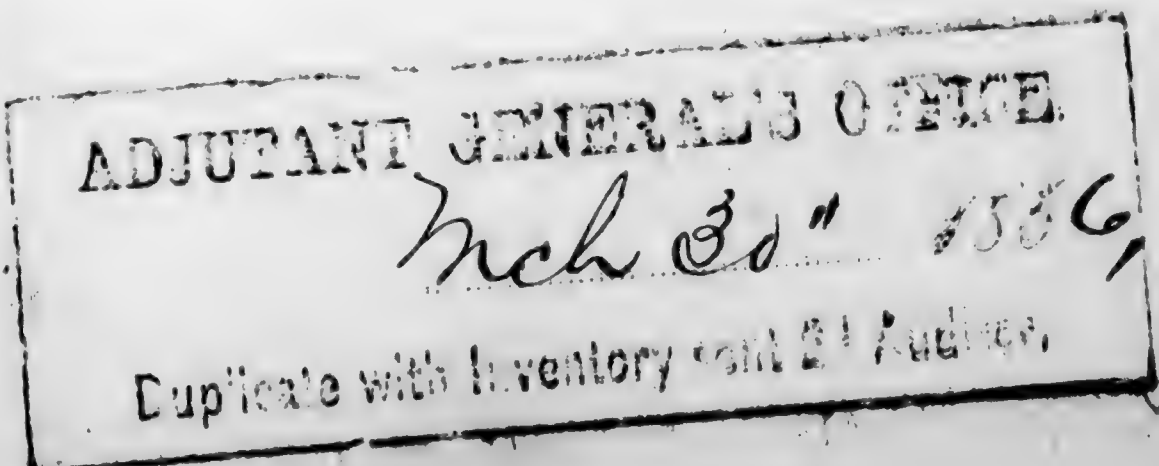 ADJUTANT GENERAL'S OFFICE.
Mch 30" 1886,
Duplicate with Inventory sent 2d Auditor.